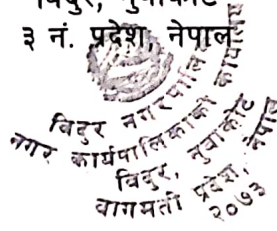 विदुर, नुवाकोट
३ नं. प्रदेश, नेपाल
विदुर नगरपालिका
नगर कार्यपालिकाको कार्यालय
विदुर, नुवाकोट
बागमती प्रदेश, नेपाल
२०७३